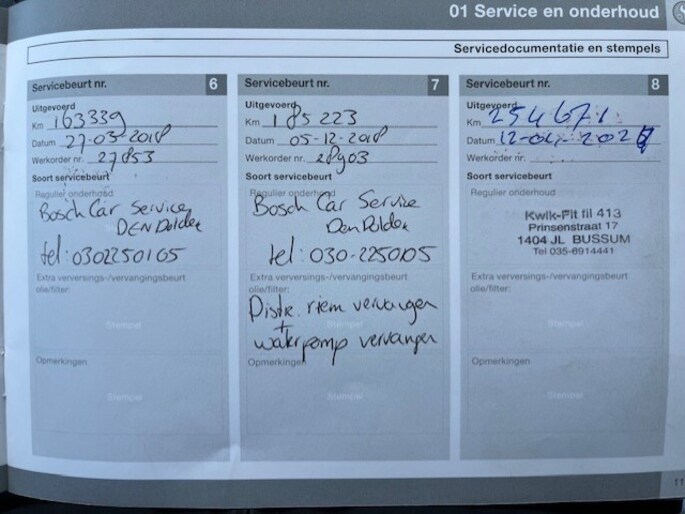 01 Service en onderhoud
Servicedocumentatie en stempels
Servicebeurt nr. 6
Uitgevoerd
Km 163339
Datum 27-03-2018
Werkorder nr. 27853
Soort servicebeurt
Regulier onderhoud
Bosch Car Service
DEN Dolder
tel: 0302250105
Extra verversings-/vervangingsbeurt
olie/filter:
Stempel
Opmerkingen
Stempel
Servicebeurt nr. 7
Uitgevoerd
Km 185223
Datum 05-12-2018
Werkorder nr. 28903
Soort servicebeurt
Regulier onderhoud
Bosch Car Service
Den Dolder
tel: 030-2250105
Extra verversings-/vervangingsbeurt
olie/filter:
Distr. riem vervangen
Stempel
+
waterpomp vervangen
Opmerkingen
Stempel
Servicebeurt nr. 8
Uitgevoerd
Km 254671
Datum
Werkorder nr.
Soort servicebeurt
Regulier onderhoud
Kwik-Fit fil 413
Prinsenstraat 17
1404 JL BUSSUM
Tel 035-6914441
Extra verversings-/vervangingsbeurt
olie/filter:
Stempel
Opmerkingen
Stempel
11